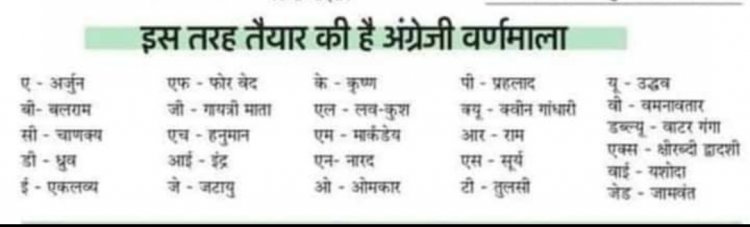 इस तरह तैयार की है अंग्रेजी वर्णमाला
ए - अर्जुन
बी- बलराम
सी - चाणक्य
डी - ध्रुव
ई - एकलव्य
एफ - फोर वेद
जी - गायत्री माता
एच - हनुमान
आई - इंद्र
जे - जटायु
के - कृष्ण
एल - लव-कुश
एम - मार्कडेय
एन- नारद
ओ - ओमकार
पी - प्रहलाद
क्यू - क्वीन गांधारी
आर - राम
एस - सूर्य
टी - तुलसी
यू - उद्धव
वी - वमनावतार
डब्ल्यू - वाटर गंगा
एक्स - क्षीरब्दी द्वादशी
वाई - यशोदा
जेड - जामवंत